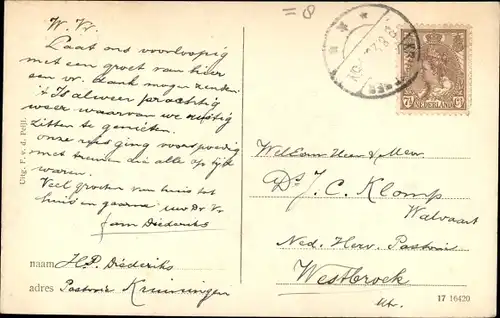 W. Vr.
Laat ons voorloopig
met een groet van hier
een vr. dank mogen zenden
't Is alweer prachtig
weer waarvan we rustig
zitten te genieten.
onze reis ging voorspoedig
met treinen die alle op tijd
waren.
Veel groeten van huis tot
huis en gaarne uw Dr Vr
fam Diederiks
naam H.P. Diederiks
adres Pastorie Kruiningen
Uitg. F. v. d. Peijl.
7½ Ct
NEDERLAND
WelEerw. Heer & Mevr.
Ds J. C. Klomp
Walvaart
Ned. Herv. Pastorie
Westbroek
Utr.
17 16420